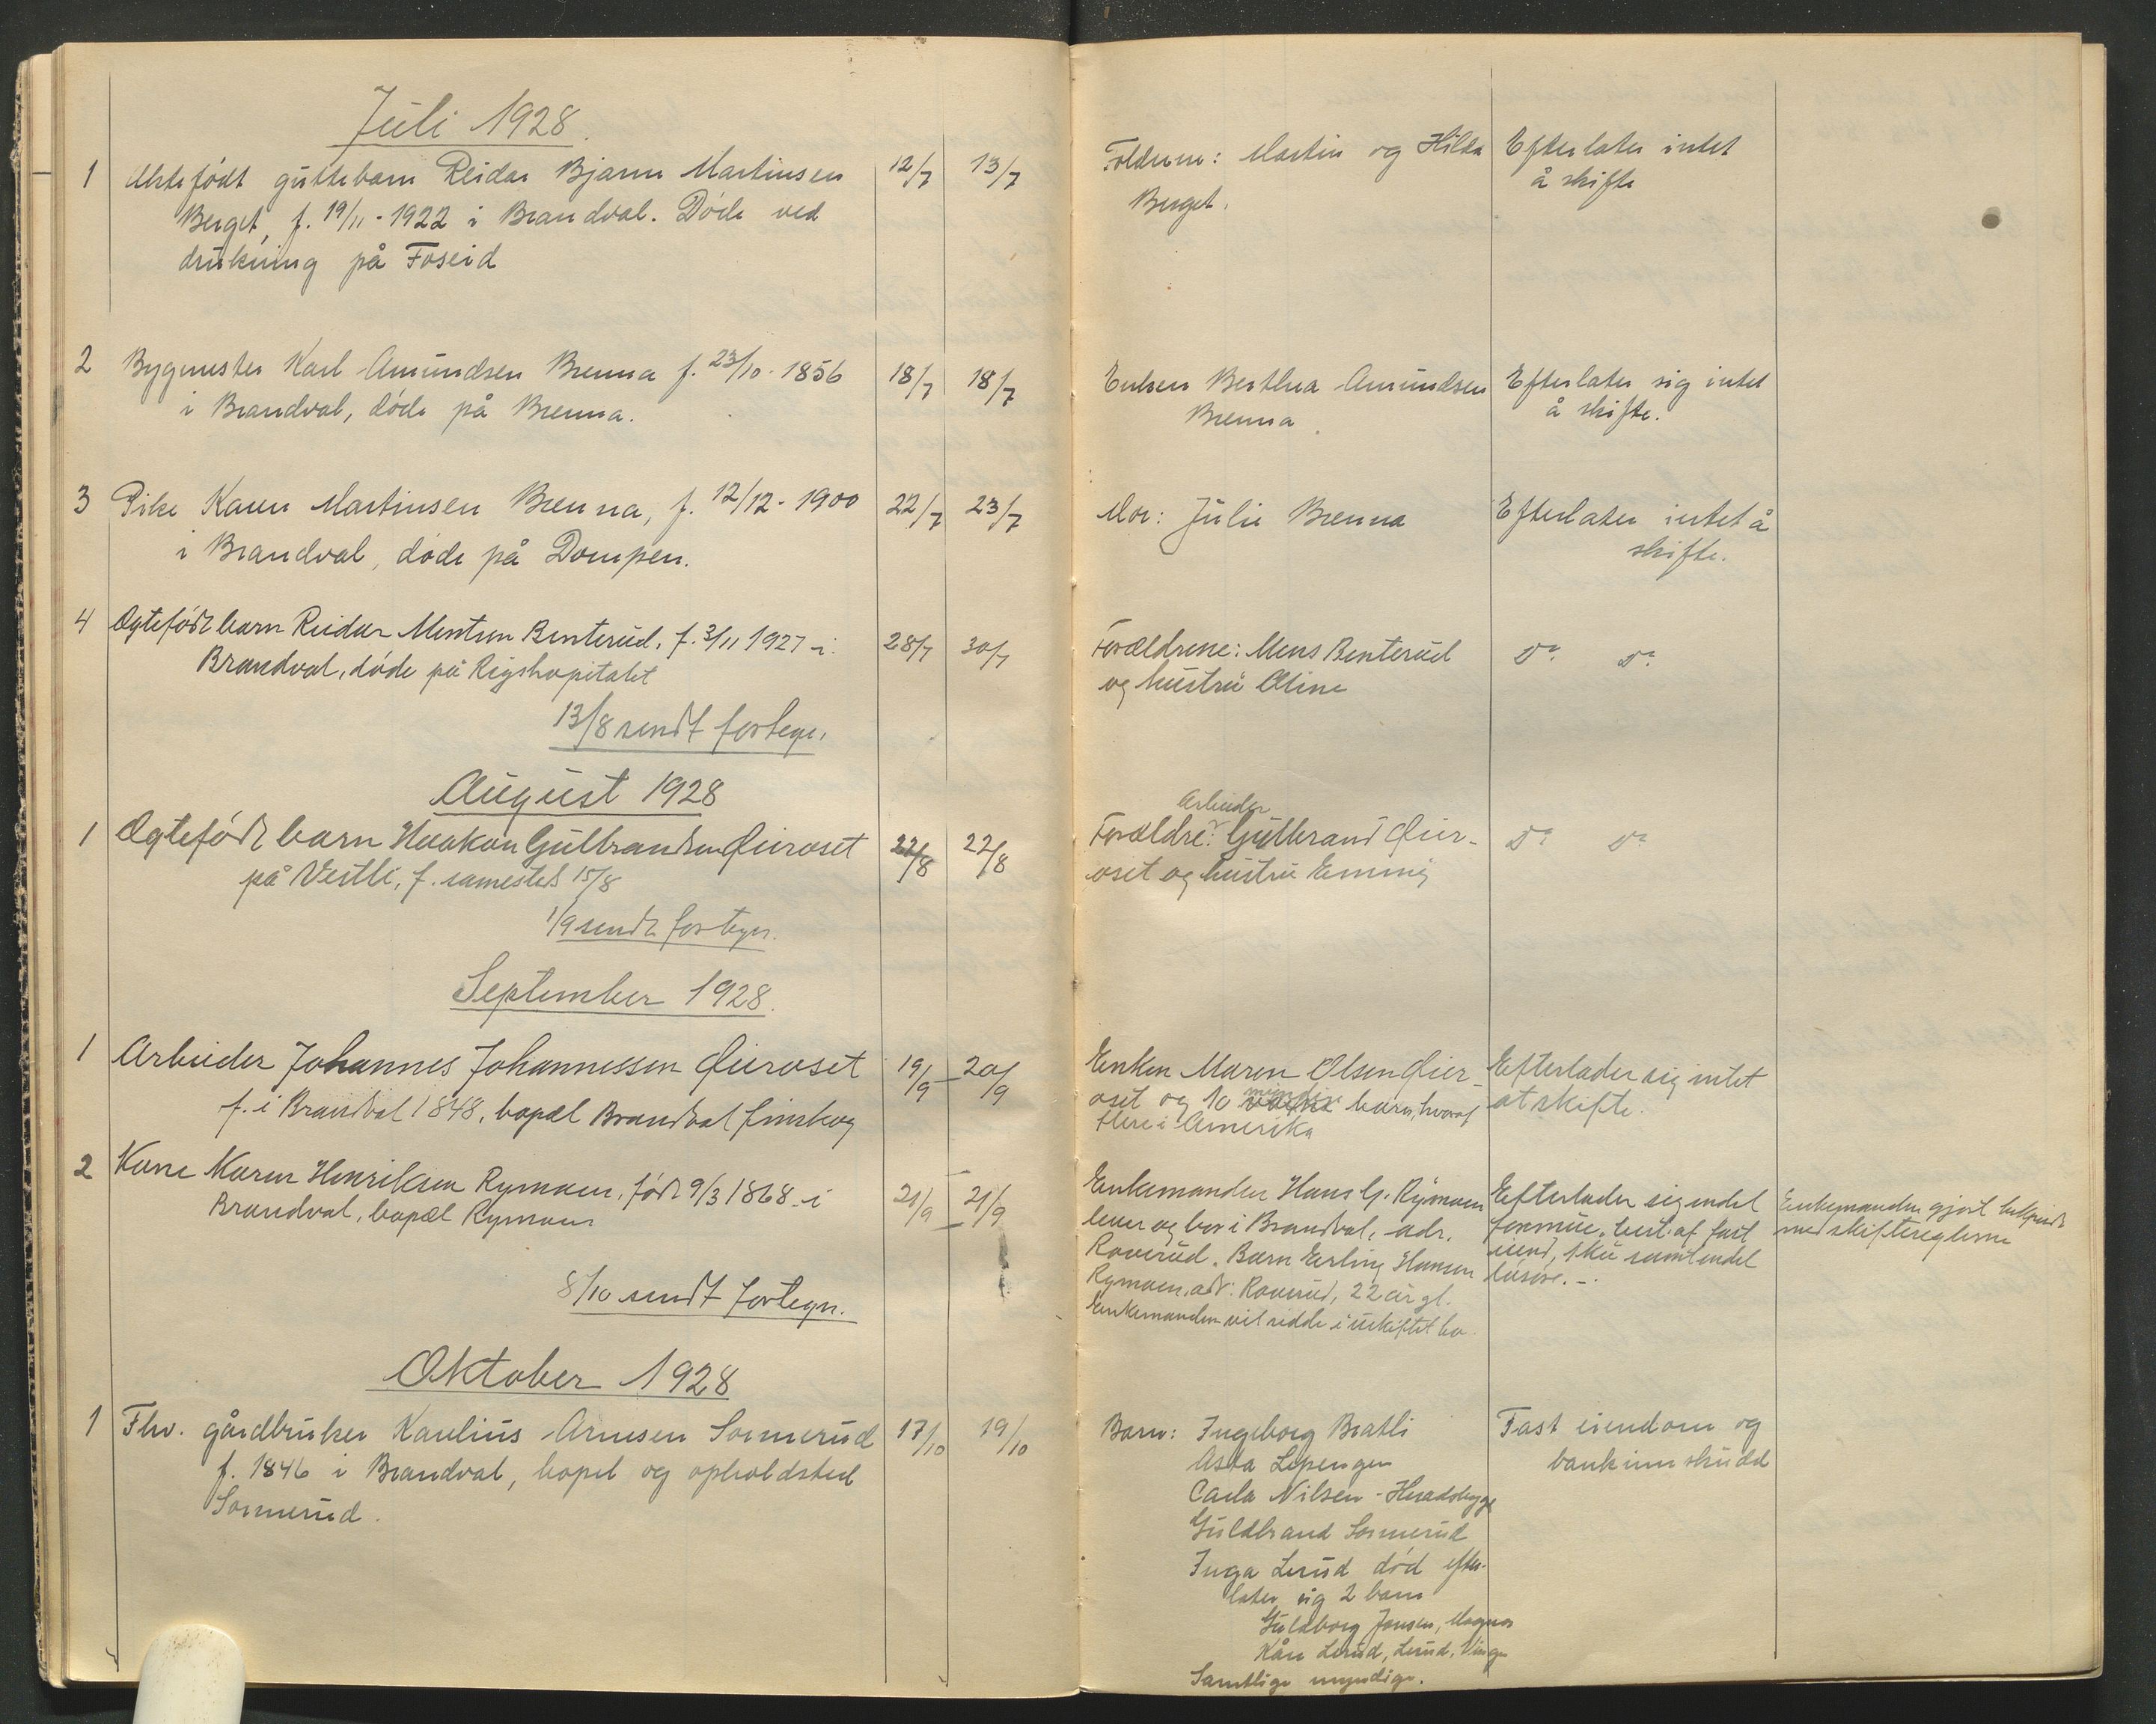 Juli 1928.
1 Ektefødt guttebarn Reidar Bjarne Martinsen 12/7 13/7 Foldrene: Martin og Hilda Efterlater intet
Berget, f. 19/11 - 1922 i Brandval. Døde ved Berget. å skifte
drukning på Foseid
2 Bygmester Karl Amundsen Brenna f. 23/10 - 1856 18/7 18/7 Enken Berthea Amundsen Efterlater sig intet
i Brandval, døde på Brenna. Brenna å skifte.
3 Pike Karen Martinsen Brenna, f. 12/12 - 1900 22/7 23/7 Mor: Julie Brenna Efterlater intet å
i Brandval, døde på Dompen. skifte.
4 Ægtefødt barn Reidar Mentsen Benterud, f. 3/11 1927 i 28/7 30/7 Forældrene: Mens Benterud Do Do
Brandval, døde på Rigshopitalet og hustru Oline
13/8 sendt fortegn.
August 1928
Arbeider
1 Ægtefødt barn Haakon Gulbrandsen Øieroset 22/8 22/8 Forældre: Gulbrand Øier- Do Do
på Vestli, f. samesteds 15/8 oset og hustru Emmy
1/9 sendt fortegn.
September 1928.
1 Arbeider Johannes Johannessen Øieroset 19/9 - 20/9 Enken Maren Olsen Øier- Efterlader sig intet
f. i Brandval 1848, bopæl Brandval finskog oset og 10 myndige barn, hvoraf at skifte.
flere i Amerika
2 Kone Maren Henriksen Rymoen, født 9/3 1868 i 21/9 - 21/9 Enkemanden Hans G. Rymoen Efterlader sig endel Enkemanden gjort bekjendt
Brandval, bopæl Rymoen lever og bor i Brandval, adr. formue, best. af fast med skiftereglerne
Roverud. Barn Erling Hansen eiend, 1 ku samt endel
8/10 sendt fortegn. Rymoen, adr: Roverud, 22 år gl. løsøre.-
Enkemanden vil sidde i uskiftet bo.
Oktober 1928
1 Fhv. gårdbruker Karelius Arnesen Sormerud 17/10 19/10 Barn: Ingeborg Bratli Fast eiendom og
f. 1846 i Brandval, bopel og opholdsted Asta Lepengen bankinnskudd
Sormerud. Carla Nilsen -
Guldbrand Sormerud
Inga Lerud død efter-
later sig 2 barn
Guldborg Jensen, Magnor
Kåre Lerud, Lerud, Vinger
Samtlige myndige.